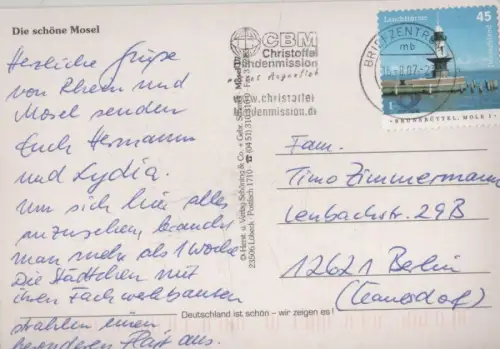 Die schöne Mosel
Herzliche Grüße
von Rhein und
Mosel senden
Euch Hermann
und Lydia.
Um sich hier alles
anzusehen, braucht
man mehr als 1 Woche
Die Städtchen mit
ihren Fachwerkbauten
strahlen einen
besonderen Flair aus.
CBM
Christoffel
Blindenmission
www.christoffel
blindenmission.de
BRIEFZENTRUM
mb
Leuchttürme
45
Deutschland
BRUNSBÜTTEL, MOLE 1
© Herst. u. Verlag Schöning & Co. + Gebr. Schmidt
23506 Lübeck · Postfach 1710
Fam.
Timo Zimmermann
Lenbachstr. 29B
12621 Berlin
(Kaulsdorf)
Deutschland ist schön – wir zeigen es!